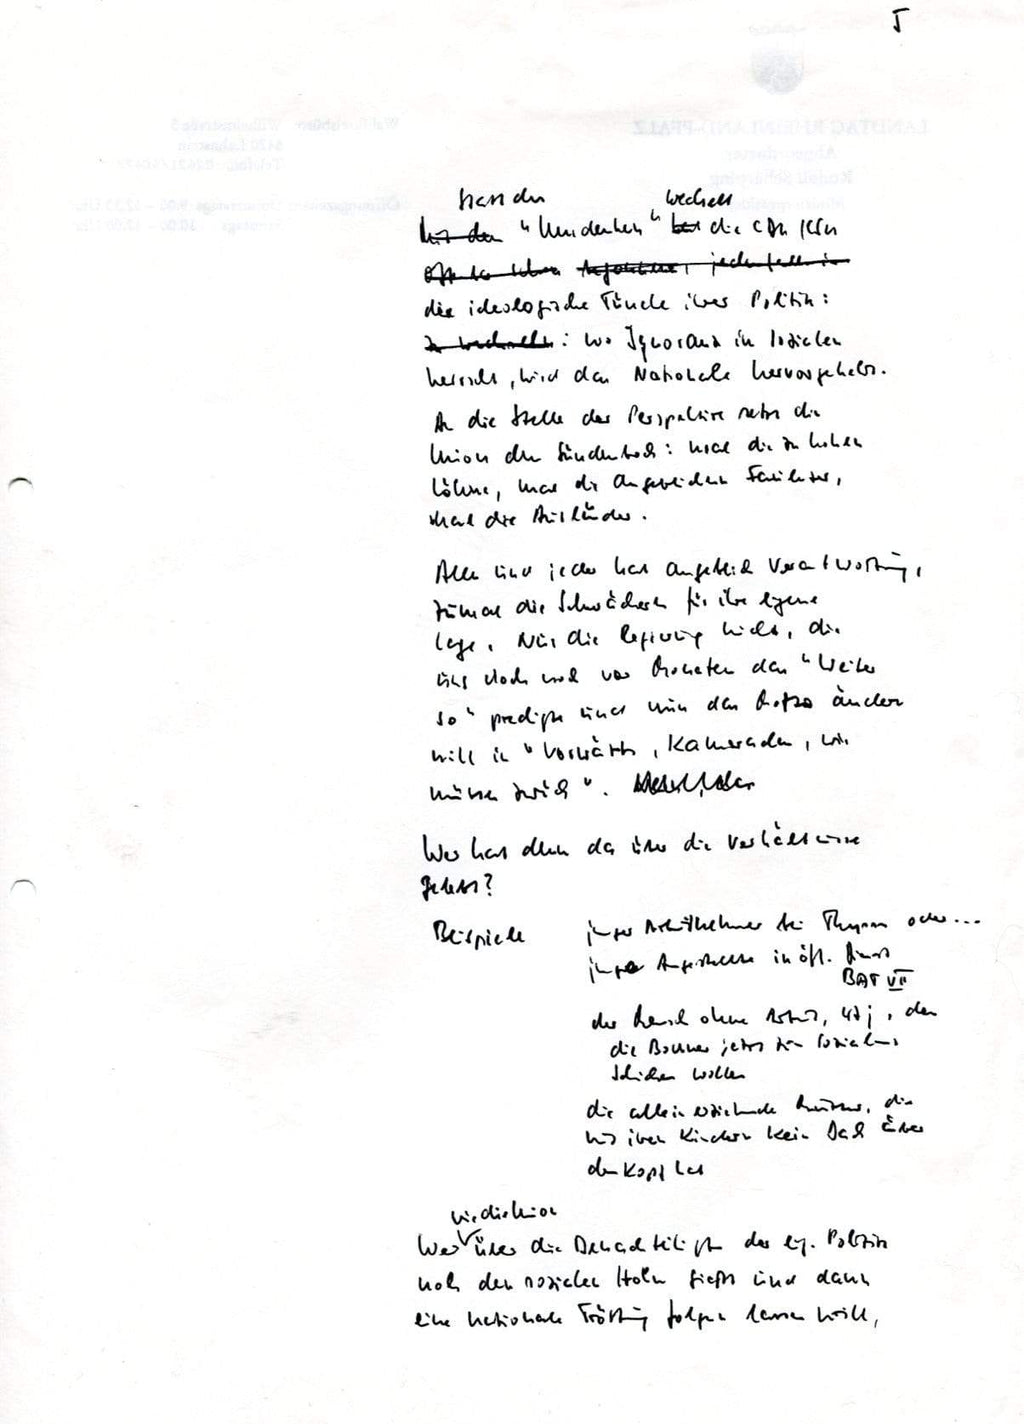 5
statt der wechselt
Mit dem "Umdenken" hat die CDU/CSU
die ideologische Tünche ihrer Politik:
zu wechseln: wo Ignoranz im sozialen
herrscht, wird das Nationale hervorgehoben.
An die Stelle der Perspektive setzt die
Union den Sündenbock: mal die zu hohen
Löhne, mal die angeblichen Faulenzer,
mal die Ausländer.
Alle und jeder hat angeblich Verantwortung,
zumal die Schwächeren für ihre eigene
Lage. Nur die Regierung nicht, die
uns noch vor Monaten das "Weiter
so" predigte und nun das Motto ändern
will in "Vorwärts, Kameraden, wir
müssen zurück".
Wer hat denn da über die Verhältnisse
gelebt?
Beispiele
junger Arbeitnehmer bei Thyssen oder...
junge Angestellte im öff. Dienst
BAT VII
der Mensch ohne Arbeit, 47 j, den
die Bonner jetzt zum Sozialamt
schicken wollen
die alleinerziehende Mutter, die
mit ihren Kindern kein Dach über
dem Kopf hat
Wer über die Benachteiligten der eig. Politik
noch den sozialen Hohn gießt und dann
eine nationale Tröstung folgen lassen will,